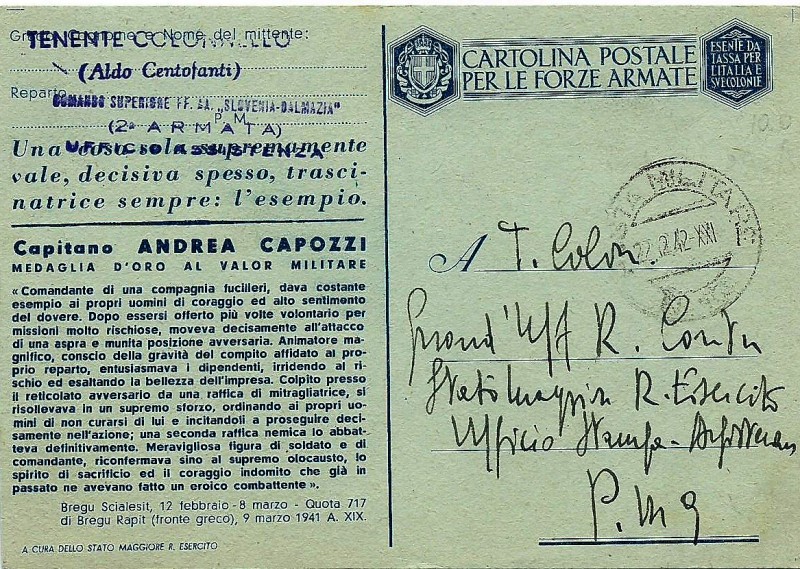 Grado, Cognome e Nome del mittente:
TENENTE COLONNELLO
(Aldo Centofanti)
Reparto
COMANDO SUPERIORE FF. AA. "SLOVENIA-DALMAZIA"
P. M.
(2ª ARMATA)
UFFICIO ASSISTENZA
Una cosa sola supremamente
vale, decisiva spesso, trasci-
natrice sempre: l'esempio.
Capitano ANDREA CAPOZZI
MEDAGLIA D'ORO AL VALOR MILITARE
«Comandante di una compagnia fucilieri, dava costante
esempio ai propri uomini di coraggio ed alto sentimento
del dovere. Dopo essersi offerto più volte volontario per
missioni molto rischiose, moveva decisamente all'attacco
di una aspra e munita posizione avversaria. Animatore ma-
gnifico, conscio della gravità del compito affidato al pro-
prio reparto, entusiasmava i dipendenti, irridendo al ri-
schio ed esaltando la bellezza dell'impresa. Colpito presso
il reticolato avversario da una raffica di mitragliatrice, si
risollevava in un supremo sforzo, ordinando ai propri uo-
mini di non curarsi di lui e incitandoli a proseguire deci-
samente nell'azione; una seconda raffica nemica lo abbat-
teva definitivamente. Meravigliosa figura di soldato e di
comandante, riconfermava sino al supremo olocausto, lo
spirito di sacrificio ed il coraggio indomito che già in
passato ne avevano fatto un eroico combattente ».
Bregu Scialesit, 12 febbraio - 8 marzo - Quota 717
di Bregu Rapit (fronte greco), 9 marzo 1941 A. XIX.
A CURA DELLO STATO MAGGIORE R. ESERCITO
CARTOLINA POSTALE
PER LE FORZE ARMATE
ESENTE DA
TASSA PER
L'ITALIA E
SVE COLONIE
POSTA MILITARE
22.12.42-XXI
A T. Colon
R.
R. Esercito
Ufficio Stampa -
P. M 9